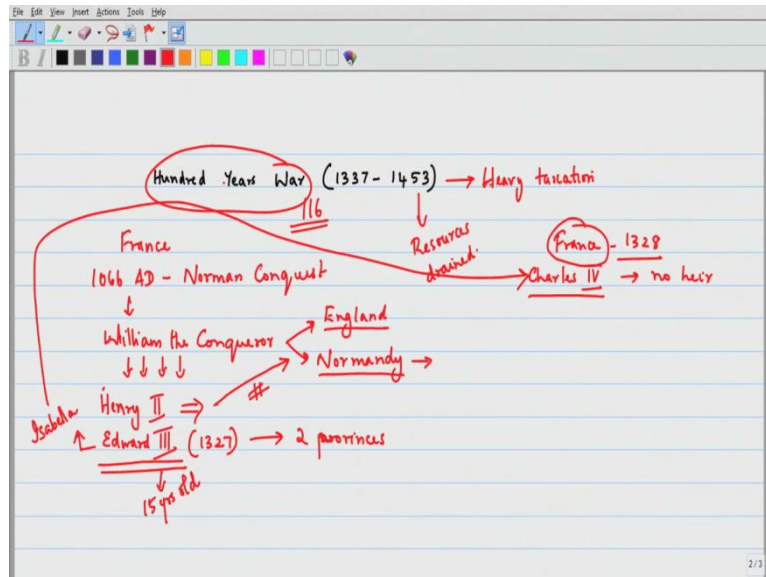 File Edit View Insert Actions Tools Help
B I
Hundred Years War (1337 - 1453) → Heavy taxation
116
Resources drained.
France - 1328
Charles IV → no heir
France
1066 AD - Norman Conquest
↓
William the Conqueror
England
Normandy →
↓ ↓ ↓ ↓
Henry II ⇒
#
Isabella
Edward III (1327) → 2 provinces
↓
15 yrs old
2/3